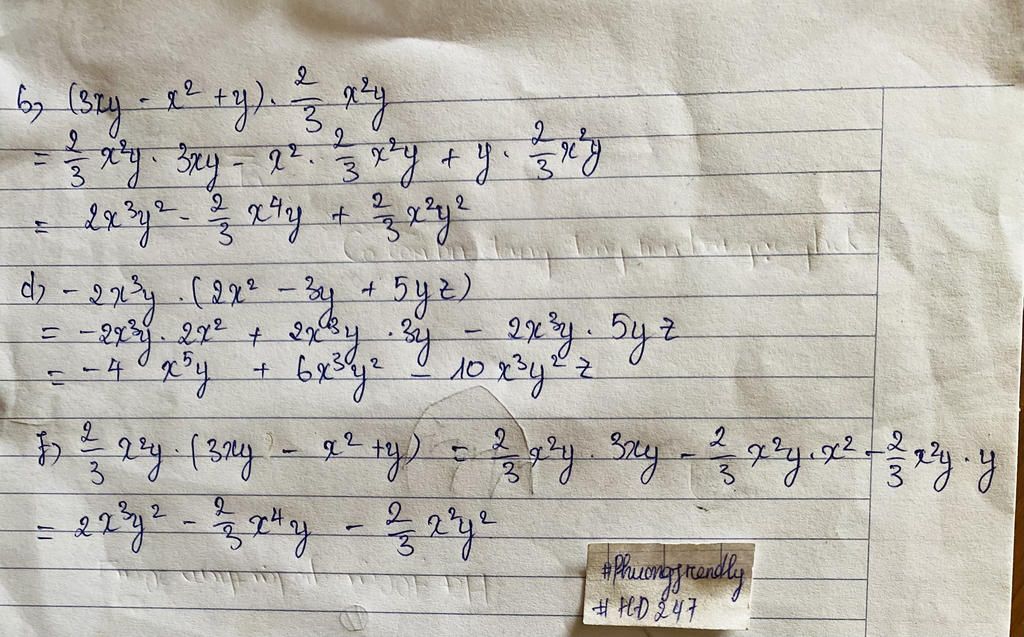 b, (3xy - x² + y). 2/3 x²y
= 2/3 x²y. 3xy - x². 2/3 x²y + y. 2/3 x²y
= 2x³y² - 2/3 x⁴y + 2/3 x²y²
d, - 2x³y .(2x² - 3y + 5yz)
= -2x³y. 2x² + 2x³y .3y - 2x³y. 5yz
= -4 x⁵y + 6x³y² - 10 x³y²z
f, 2/3 x²y .(3xy - x² + y) = 2/3 x²y. 3xy - 2/3 x²y. x² - 2/3 x²y. y
= 2x³y² - 2/3 x⁴y - 2/3 x²y²
#Phuongfrendly
#HD247